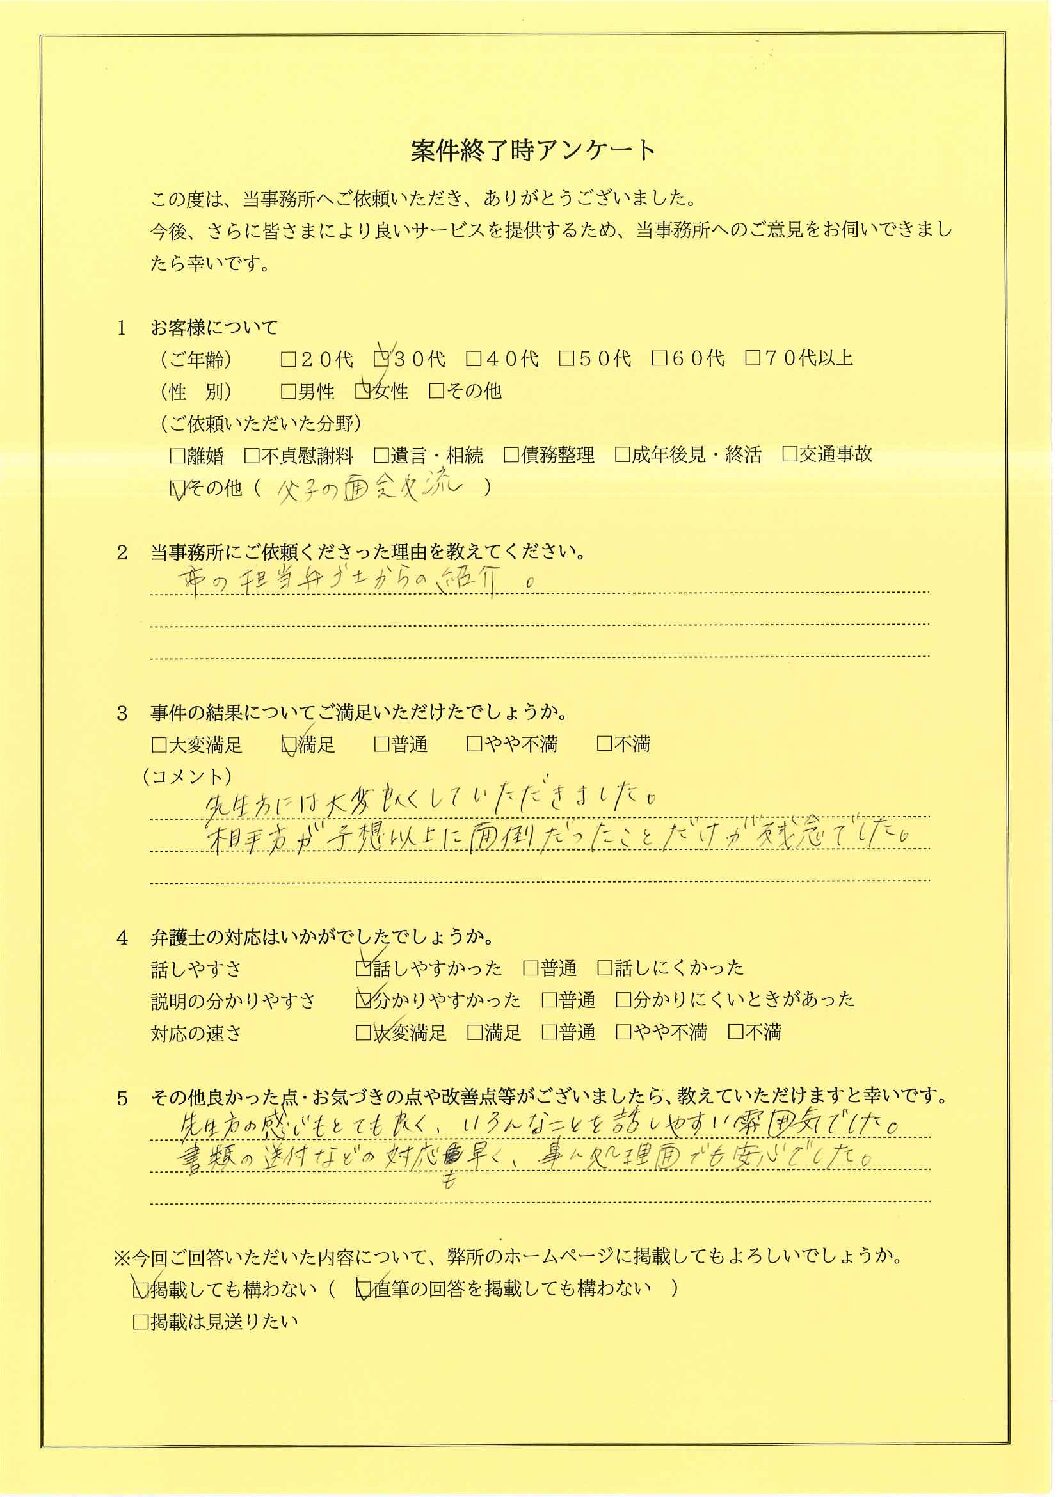 案件終了時アンケート
この度は、当事務所へご依頼いただき、ありがとうございました。
今後、さらに皆さまにより良いサービスを提供するため、当事務所へのご意見をお伺いできまし
たら幸いです。
1 お客様について
（ご年齢） □２０代 ☑３０代 □４０代 □５０代 □６０代 □７０代以上
（性　別） □男性 ☑女性 □その他
（ご依頼いただいた分野）
□離婚 □不貞慰謝料 □遺言・相続 □債務整理 □成年後見・終活 □交通事故
☑その他（ 父子の面会交流 ）
2 当事務所にご依頼くださった理由を教えてください。
市の担当弁ゴ士からの紹介。
3 事件の結果についてご満足いただけたでしょうか。
□大変満足 ☑満足 □普通 □やや不満 □不満
（コメント）
先生方には大変良くしていただきました。
相手方が予想以上に面倒だったことだけが残念でした。
4 弁護士の対応はいかがでしたでしょうか。
話しやすさ ☑話しやすかった □普通 □話しにくかった
説明の分かりやすさ ☑分かりやすかった □普通 □分かりにくいときがあった
対応の速さ ☑大変満足 □満足 □普通 □やや不満 □不満
5 その他良かった点・お気づきの点や改善点等がございましたら、教えていただけますと幸いです。
先生方の感じもとても良く、いろんなことを話しやすい雰囲気でした。
書類の送付などの対応も早く、事ム処理面でも安心でした。
※今回ご回答いただいた内容について、弊所のホームページに掲載してもよろしいでしょうか。
☑掲載しても構わない（ ☑直筆の回答を掲載しても構わない ）
□掲載は見送りたい